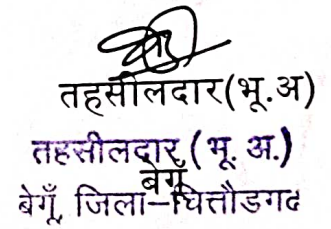 तहसीलदार(भू.अ)
तहसीलदार (भू. अ.)
बेगूँ
बेगूँ, जिला-चित्तौडगढ